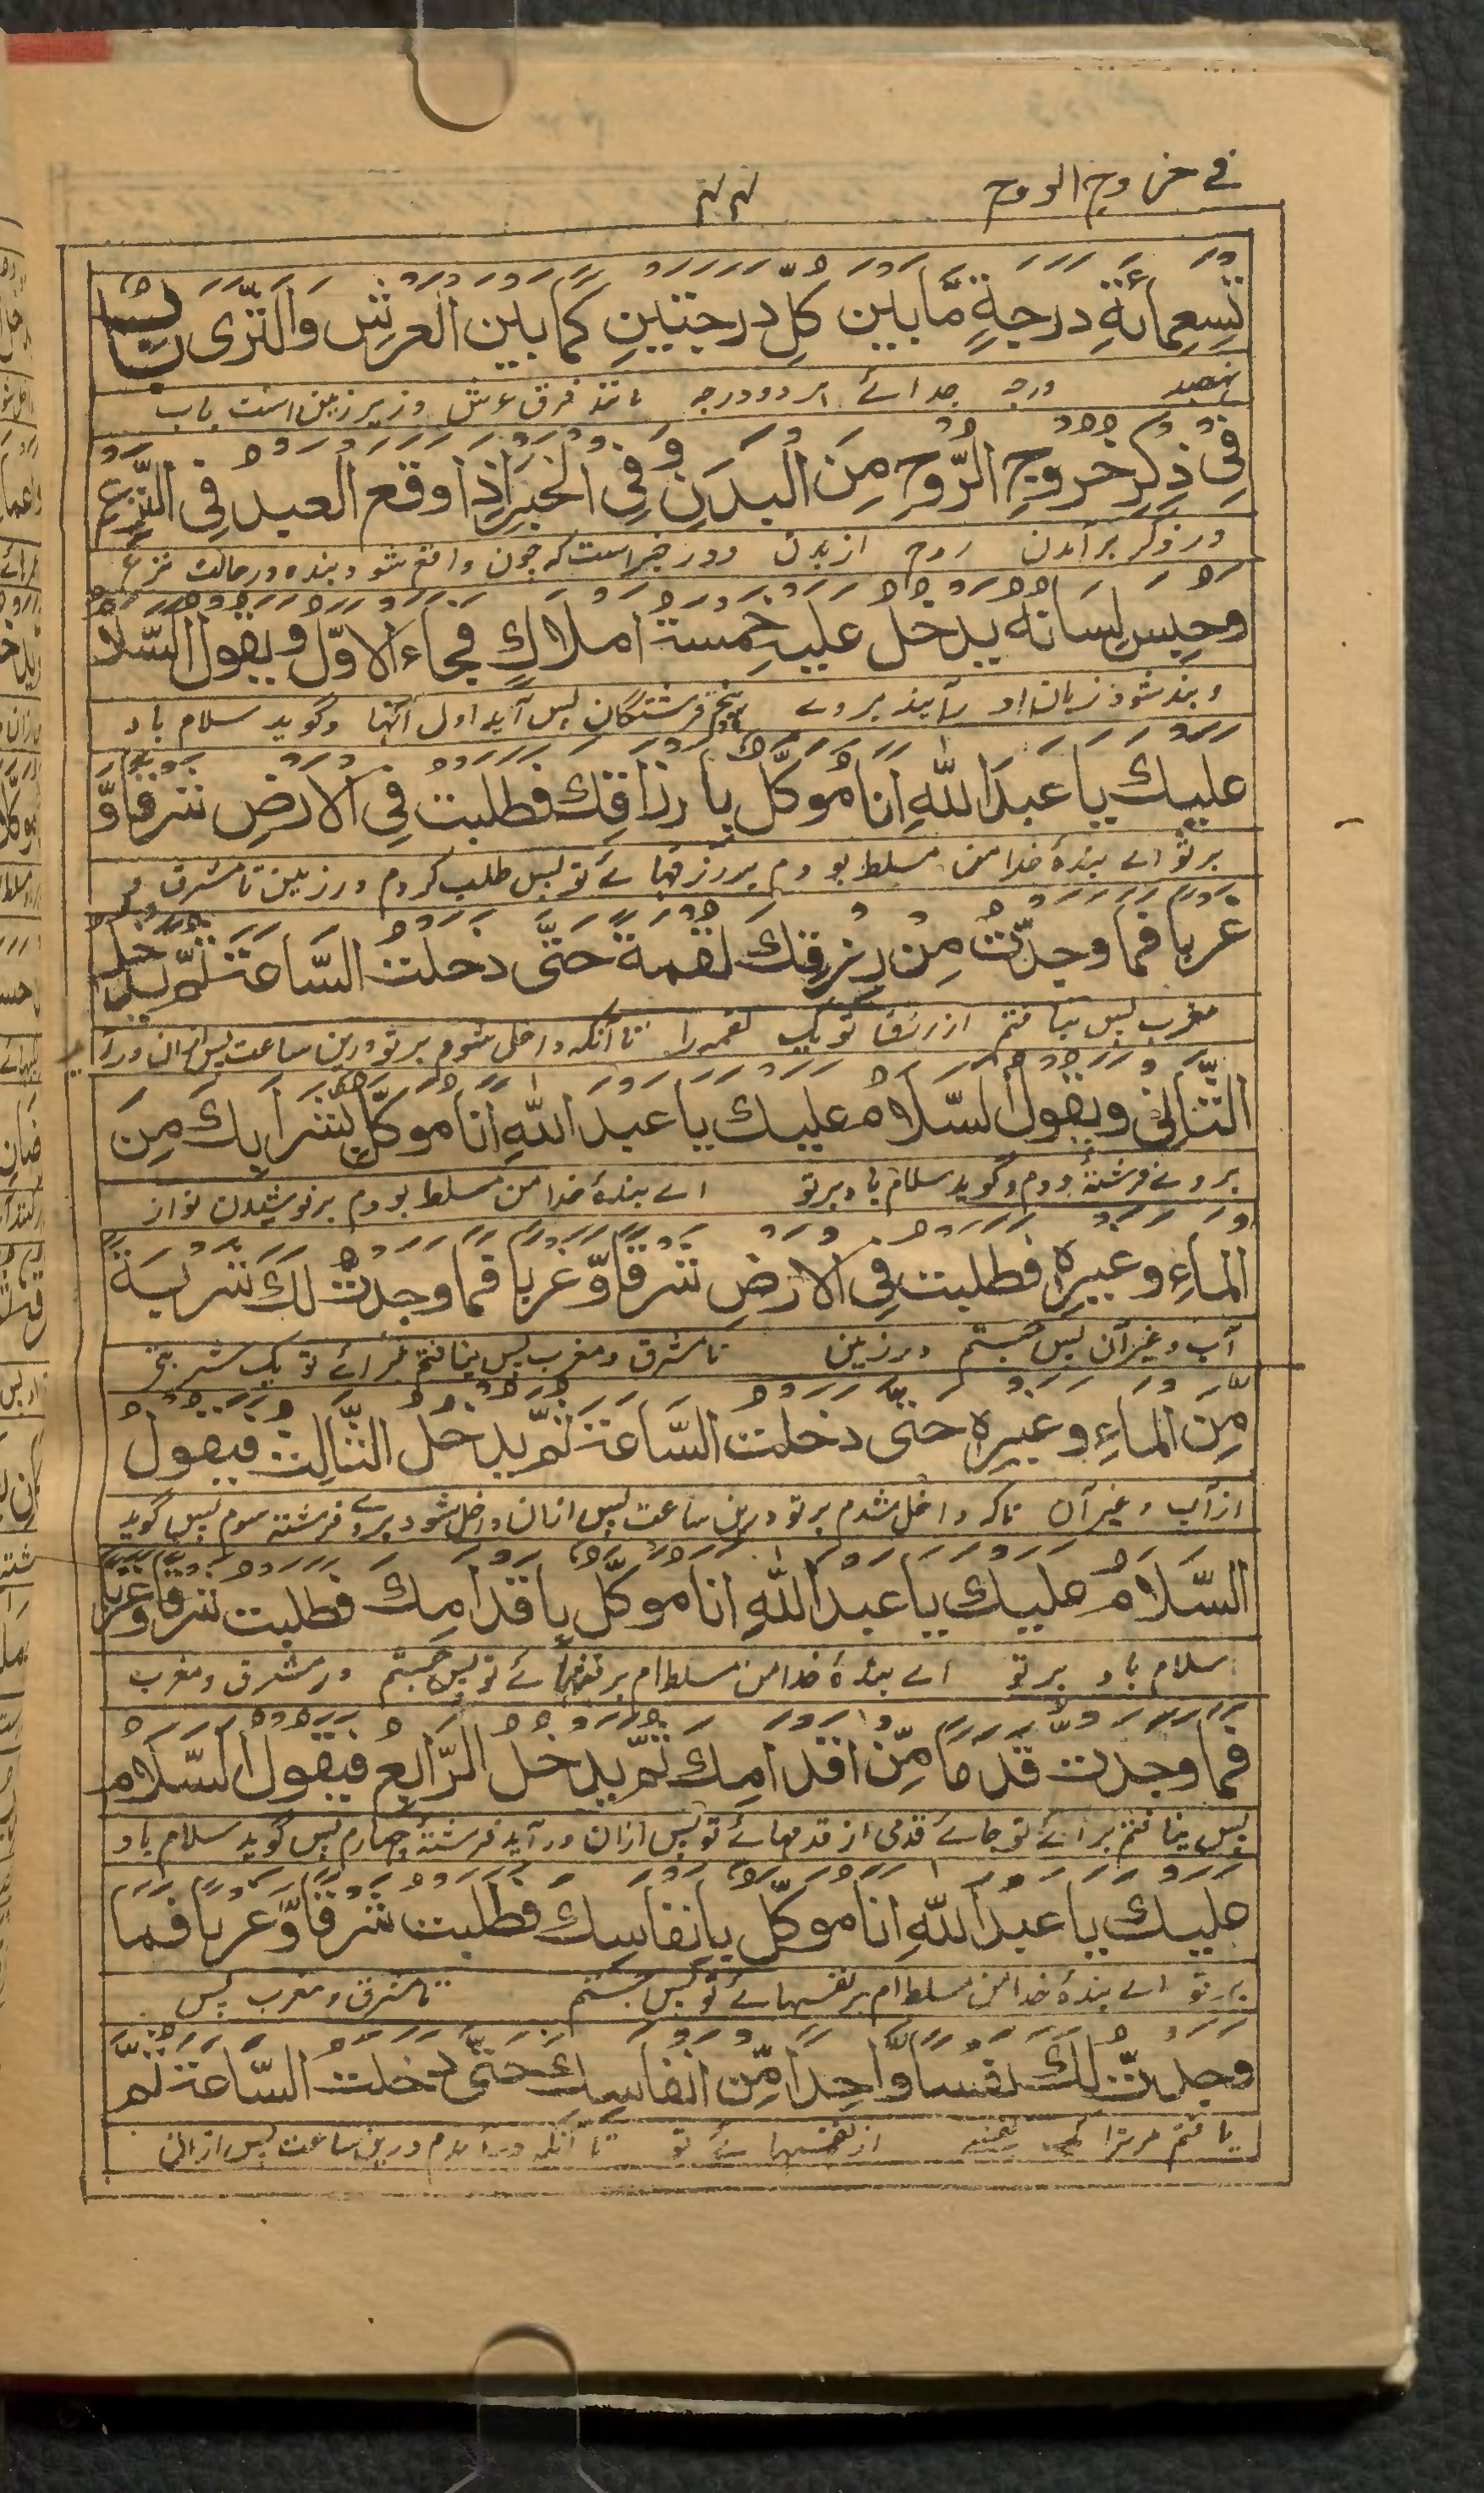 في خروج الروح ۴۴
تِسْعِمِائَةِ دَرَجَةٍ مَّا بَيْنَ كُلِّ دَرَجَتَيْنِ كَمَا بَيْنَ الْعَرْشِ وَالثَّرٰى بَابٌ
نہصد درجہ جدائے ہر دو درجہ مانند فرق عرش و زیر زمین است باب
فِيْ ذِكْرِ خُرُوْجِ الرُّوْحِ مِنَ الْبَدَنِ وَفِي الْخَبَرِ اِذَا وَقَعَ الْعَبْدُ فِي النَّزْعِ
در ذکر برآمدن روح از بدن و در خبر است که چون واقع شود بنده در حالت نزع
وَحُبِسَ لِسَانُهٗ يَدْخُلُ عَلَيْهِ خَمْسَةُ اَمْلَاكٍ فَجَاءَ الْاَوَّلُ وَيَقُوْلُ السَّلَامُ
و بند شود زبان او بآیند بروے پنج فرشتگان پس آید اول آنها و گوید سلام باد
عَلَيْكَ يَا عَبْدَ اللّٰهِ اَنَا مُوَكَّلٌ بِاَرْزَاقِكَ فَطَلَبْتُ فِي الْاَرْضِ شَرْقًا وَّ
بر تو اے بندۂ خدا من مسلط بودم بر رزقہائے تو پس طلب کردم در زمین تا مشرق و
غَرْبًا فَمَا وَجَدْتُّ مِنْ رِزْقِكَ لُقْمَةً حَتّٰى دَخَلْتُ السَّاعَةَ ثُمَّ يَدْخُلُ
مغرب پس نیافتم از رزق تو یک لقمه را تا آنکه داخل شوم بر تو درین ساعت پس ازان درآید
الثَّانِيْ وَيَقُوْلُ السَّلَامُ عَلَيْكَ يَا عَبْدَ اللّٰهِ اَنَا مُوَكَّلٌ بِشَرَابِكَ مِنَ
بروے فرشتۂ دوم و گوید سلام باد بر تو اے بندۂ خدا من مسلط بودم بر نوشیدن تو از
الْمَاءِ وَغَيْرِهٖ فَطَلَبْتُ فِي الْاَرْضِ شَرْقًا وَّغَرْبًا فَمَا وَجَدْتُّ لَكَ شَرْبَةً
آب و غیر آن پس جستم در زمین تا مشرق و مغرب پس نیافتم برائے تو یک شربتے
مِّنَ الْمَاءِ وَغَيْرِهٖ حَتّٰى دَخَلْتُ السَّاعَةَ ثُمَّ يَدْخُلُ الثَّالِثُ فَيَقُوْلُ
از آب و غیر آن تا که داخل شدم بر تو درین ساعت پس ازان داخل شود بروے فرشتہ سوم پس گوید
السَّلَامُ عَلَيْكَ يَا عَبْدَ اللّٰهِ اَنَا مُوَكَّلٌ بِاَقْدَامِكَ فَطَلَبْتُ شَرْقًا وَّغَرْبًا
سلام باد بر تو اے بندۂ خدا من مسلط ام بر قدمہائے تو پس جستم در مشرق و مغرب
فَمَا وَجَدْتُ قَدَمًا مِّنْ اَقْدَامِكَ ثُمَّ يَدْخُلُ الرَّابِعُ فَيَقُوْلُ السَّلَامُ
پس نیافتم برائے تو جائے قدمی از قدمہائے تو پس ازان درآید فرشتۂ چہارم پس گوید سلام باد
عَلَيْكَ يَا عَبْدَ اللّٰهِ اَنَا مُوَكَّلٌ بِاَنْفَاسِكَ فَطَلَبْتُ شَرْقًا وَّغَرْبًا فَمَا
بر تو اے بندۂ خدا من مسلط ام بر نفسہائے تو پس جستم تا مشرق و مغرب پس
وَجَدْتُّ لَكَ نَفَسًا وَّاحِدًا مِّنْ اَنْفَاسِكَ حَتّٰى دَخَلْتُ السَّاعَةَ ثُمَّ
یافتم مر ترا از نفسہائے تو تا آنکه درآمدم درین ساعت پس ازان